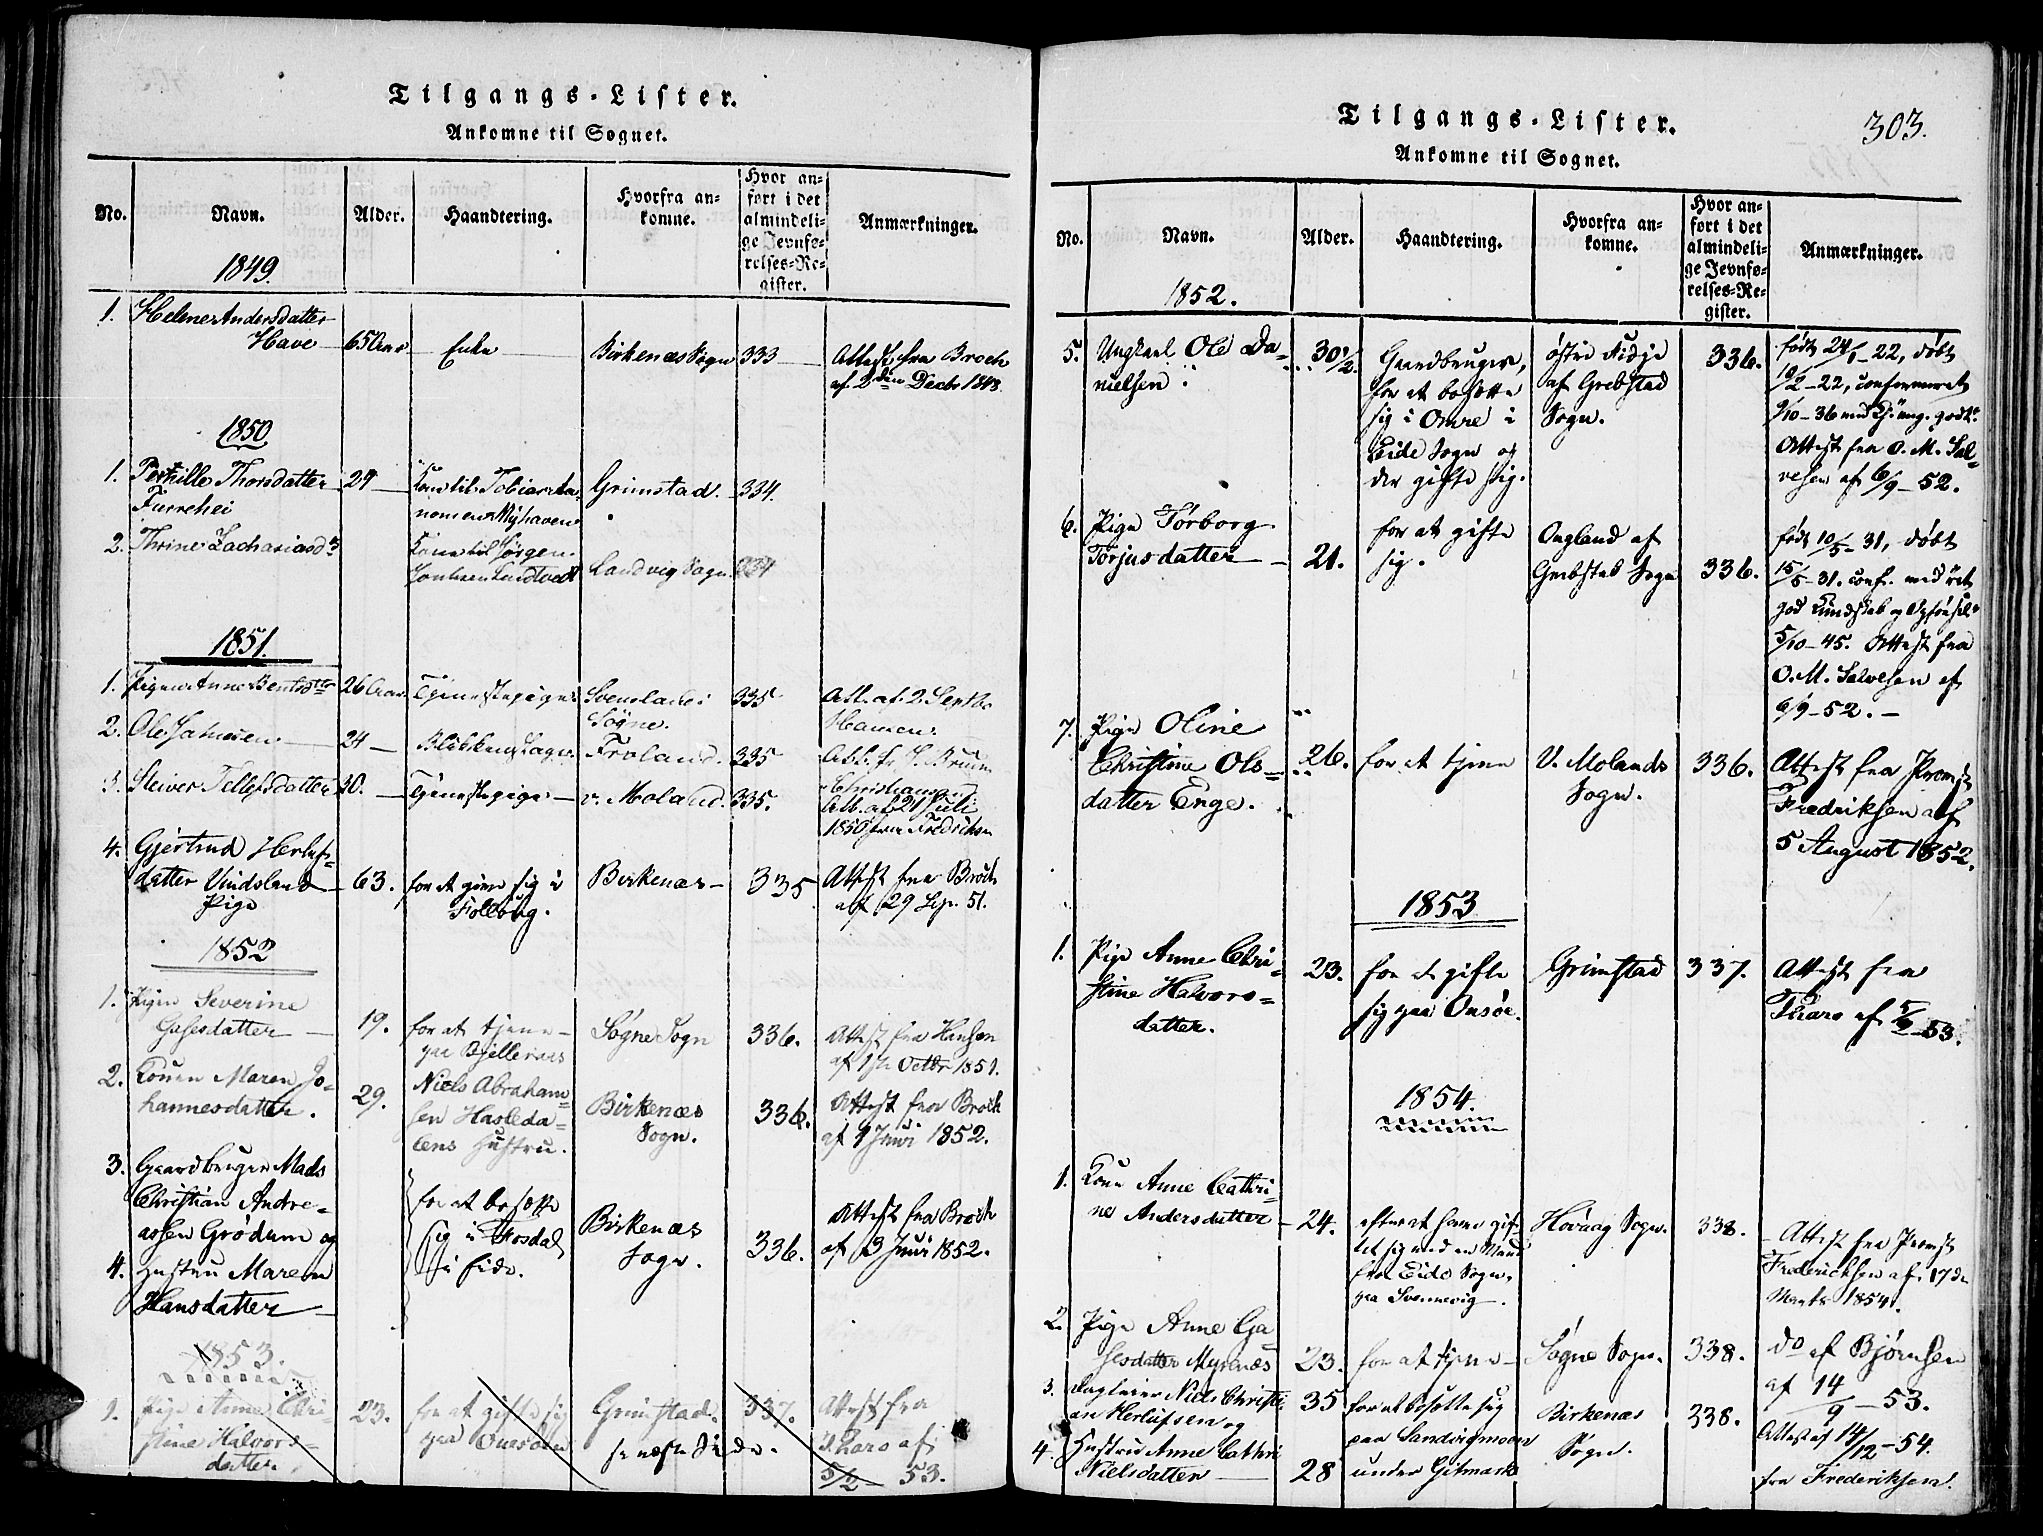 Tilgangs-Lister.
Ankomne til Sognet.
No.
Navn.
Alder.
Haandtering.
Hvorfra an-
komne.
Hvor an-
ført i det
almindeli-
ge Jevnfø-
relses-Re-
gister.
Anmærkninger.
1849.
1. Helene Andersdatter
Have 65 Aar Enke Birkenæs Sogn 333 Attest fra Broch
af 2den Decbr 1848.
1850
1. Pernille Thorsdatter 29 Kone til Tobias Aa- Grimstad. 334.
Furrehei
2. Thrine Zachariasd. Kone til Jørgen
Landvig Sogn 334
1851.
1. Pigen Anne Bentsdtr 26 Aar Tjenestepige 335 Att. af 2 Septbr
Søgne. Hansen.
2. Ole 24 Froland. 335
3. Tellefsdatter 30. Tjenestepige v. Moland. 335.
Att. af 21 Juli
1850 fra Fredriksen
4. Gjertrud Herlufs-
datter Vindsland 63. for at give sig i Birkenæs 335 Attest fra Broch
Pige af 29 Sep. 51.
1852
1. Pigen Severine
datter 19. for at tjene Søgne Sogn 336. Attest fra Hansen
paa af 1ste Octbr 1851.
2. Konen Maren Jo-
hannesdatter. 29. Niels Abraham-
sen Hasleda-
lens Hustru. Birkenæs
Sogn. 336. Attest fra Broch
af 1 Juni 1852.
3. Gaardbruger Mads
Christian Andre-
assen Grødum og
4. Hustru Maren
Hansdatter
for at bosætte
sig i Mosdal
i Eide.
Birkenæs
Sogn. 336. Attest fra Broch
af 3 Juni 1852.
1853.
1. Pige Anne Chri-
stine Halvors-
datter. 23. for at gifte sig
paa Onsøen Grimstad. 337. Attest fra
se næste Side. Tharo af
5/2 53.
Tilgangs-Lister.
303.
Ankomne til Sognet.
No.
Navn.
Alder.
Haandtering.
Hvorfra an-
komne.
Hvor an-
ført i det
almindeli-
ge Jevnfø-
relses-Re-
gister.
Anmærkninger.
1852.
5. Ungkarl Ole Da-
nielsen. 30 1/2 Gaardbruger,
for at bosætte
sig i Omre i
Eide Sogn og
der gifte sig.
østre Fidje
af Grebstad
Sogn. 336. født 24/1-22, døbt
10/2-22, confirmeret
9/10-36 med Ch: mg. godt.
Attest fra O. M. Sal-
vesen af 6/9-52.
6. Pige Torborg
Torjusdatter 21. for at gifte
sig. Ougland af
Grebstad Sogn 336. født 10/5-31, døbt
15/5-31. conf. med
god Kundskab og Opførsel
5/10-45. Attest fra
O. M. Salvesen af
9/9-52.
7. Pige Oline
Christine Ols-
datter Enge. 26. for at tjene V. Molands
Sogn. 336. Attest fra Provst
Fredriksen af
5 August 1852.
1853
1. Pige Anne Chri-
stine Halvors-
datter. 23. for at gifte
sig paa Onsøe. Grimstad 337. Attest fra
Tharo af 5/2-53.
1854.
1. Kone Anne Cathri-
ne Andersdatter 24. efter at have gif-
tet sig med en Mand
fra Eide Sogn,
paa Svennevig. Høvaag Sogn. 338. Attest fra Provst
Fredericksen af 17de
Marts 1854.
2. Pige Anne Ga-
sesdatter Myrenæs 23. for at tjene Søgne Sogn. 338. do af Bjørnsen
af 14/9-53.
3. Niels Christi-
an Herlufsen og 35 for at bosætte sig
paa Sandvigmoen
under Gitmark Birkenæs
Sogn. 338. Attest af 14/12-54.
fra Frederiksen.
4. Hustru Anne Cathri
Nielsdatter 28